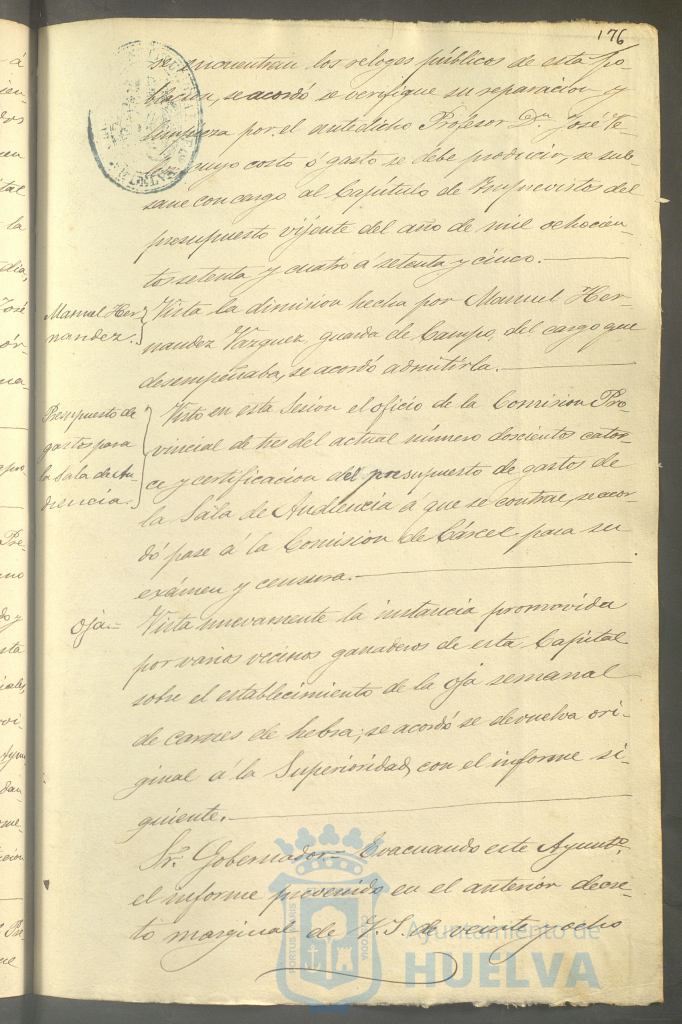 176
se encuentran los reloges públicos de esta Po-
blacion, se acordó se verifique su reparacion y
limpieza por el antedicho Profesor Dn José
cuyo costo ó gasto se debe producir, se sub-
sane con cargo al Capítulo de Imprevistos del
presupuesto vijente del año de mil ochocien-
tos setenta y cuatro á setenta y cinco.
Manuel Her-
nandez.
Vista la dimision hecha por Manuel Her-
nandez Vazquez, guarda de Campo, del cargo que
desempeñaba, se acordó admitirla.
Presupuesto de
gastos para
la Sala de Au-
diencia.
Visto en esta Sesion el oficio de la Comision Pro-
vincial de tres del actual número doscientos cator-
ce y certificacion del presupuesto de gastos de
la Sala de Audiencia á que se contrae, se acor-
dó pase á la Comision de Cárcel para su
exámen y censura.
Oja
Vista nuevamente la instancia promovida
por varios vecinos ganaderos de esta Capital
sobre el establecimiento de la oja semanal
de carnes de hebra; se acordó se devuelva ori-
ginal á la Superioridad, con el informe si-
guiente.
Sr. Gobernador.- Evacuando este Ayunto.
el informe prevenido en el anterior decre-
to marginal de V. S. de veinte y ocho
Ayuntamiento de
HUELVA